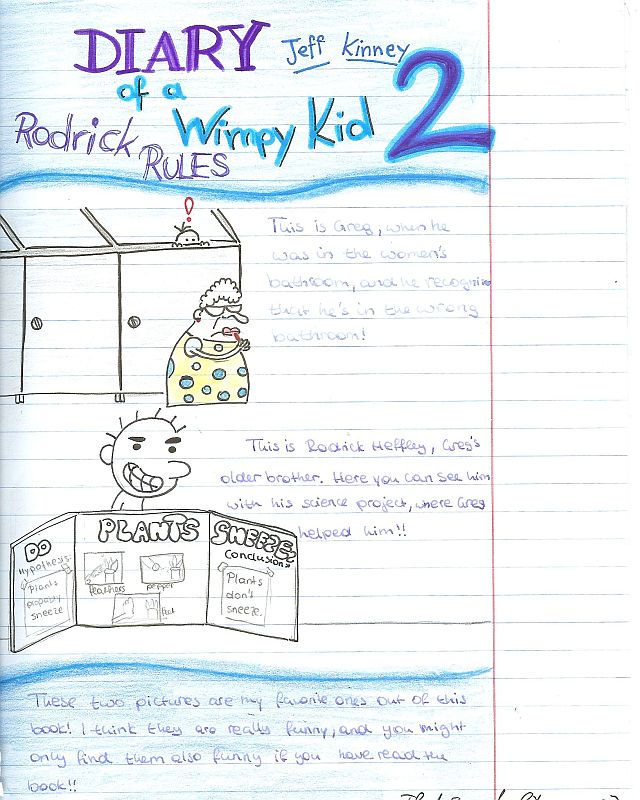 DIARY Jeff Kinney
of a
Wimpy Kid 2
Rodrick
RULES
!
This is Greg, when he
was in the women's
bathroom, and he recognize
that he's in the wrong
bathroom!
This is Rodrick Heffley, Greg's
older brother. Here you can see him
with his science project, where Greg
helped him!!
DO PLANTS SNEEZE?
Hypothesis
Plants
sneeze
feathers
pepper
Conclusions
Plants
don't
sneeze.
These two pictures are my favorite ones out of this
book! I think they are really funny, and you might
only find them also funny if you have read the
book!!